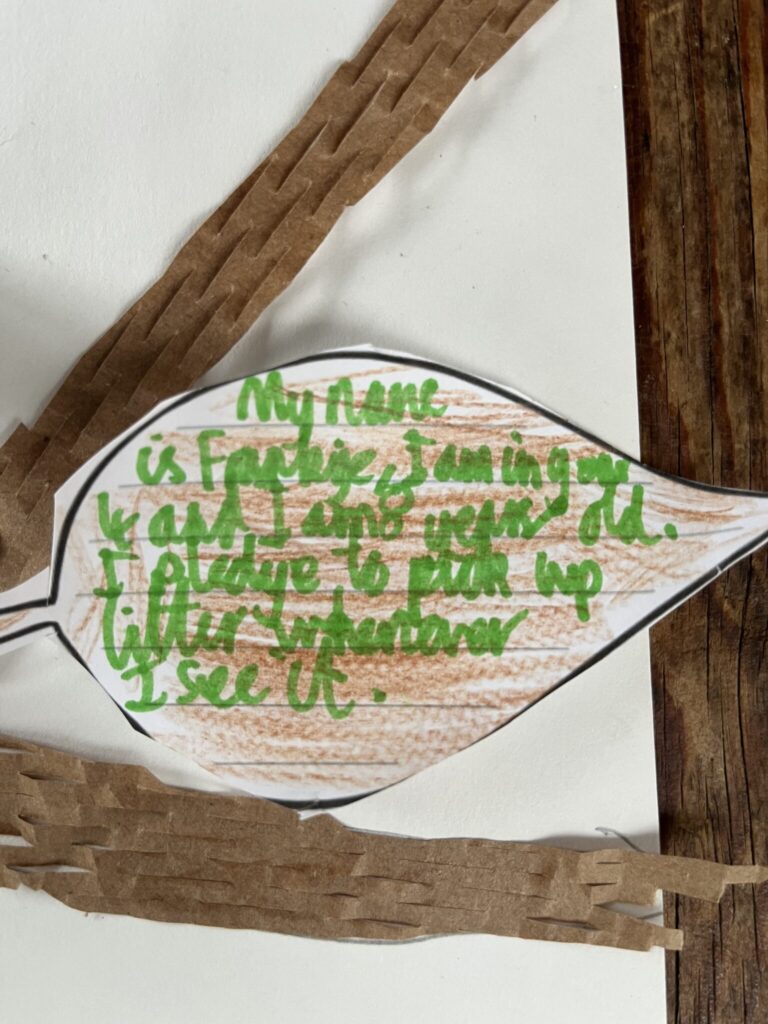 My name
is Frankie, I am in year
4 and I am 8 years old.
I pledge to pick up
litter whenever
I see it.